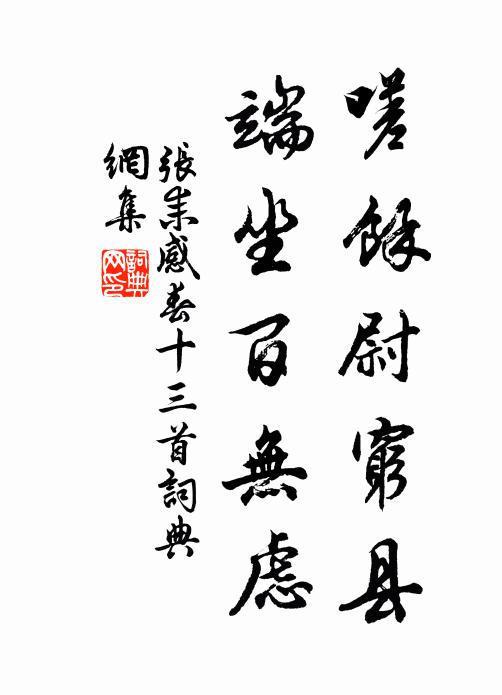 嗟餘尉窮县
端坐百無慮
張耒感春十三首詞典
網集
詞典
网印